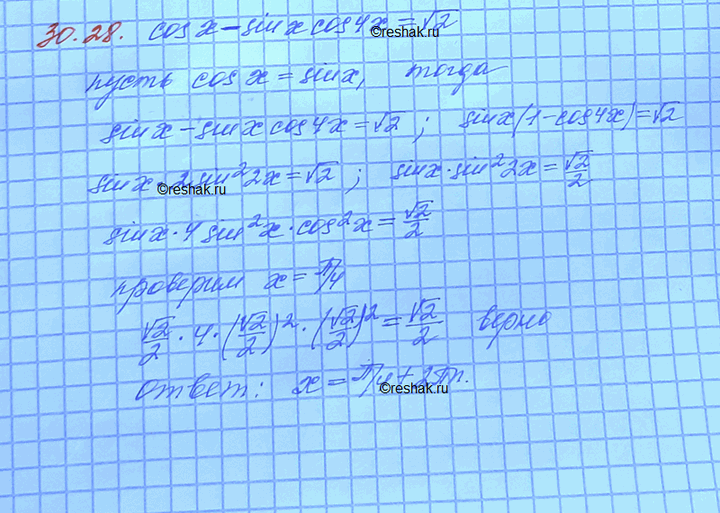 30.28. cos x - sin x cos 4x = √2
©reshak.ru
пусть cos x = sin x, тогда
sin x - sin x cos 4x = √2 ; sin x (1 - cos 4x) = √2
sin x · 2 sin² 2x = √2 ; sin x · sin² 2x = √2/2
©reshak.ru
sin x · 4 sin² x · cos² x = √2/2
проверим x = π/4
√2/2 · 4 · (√2/2)² · (√2/2)² = √2/2 верно
ответ: x = π/4 + 2πn.
©reshak.ru